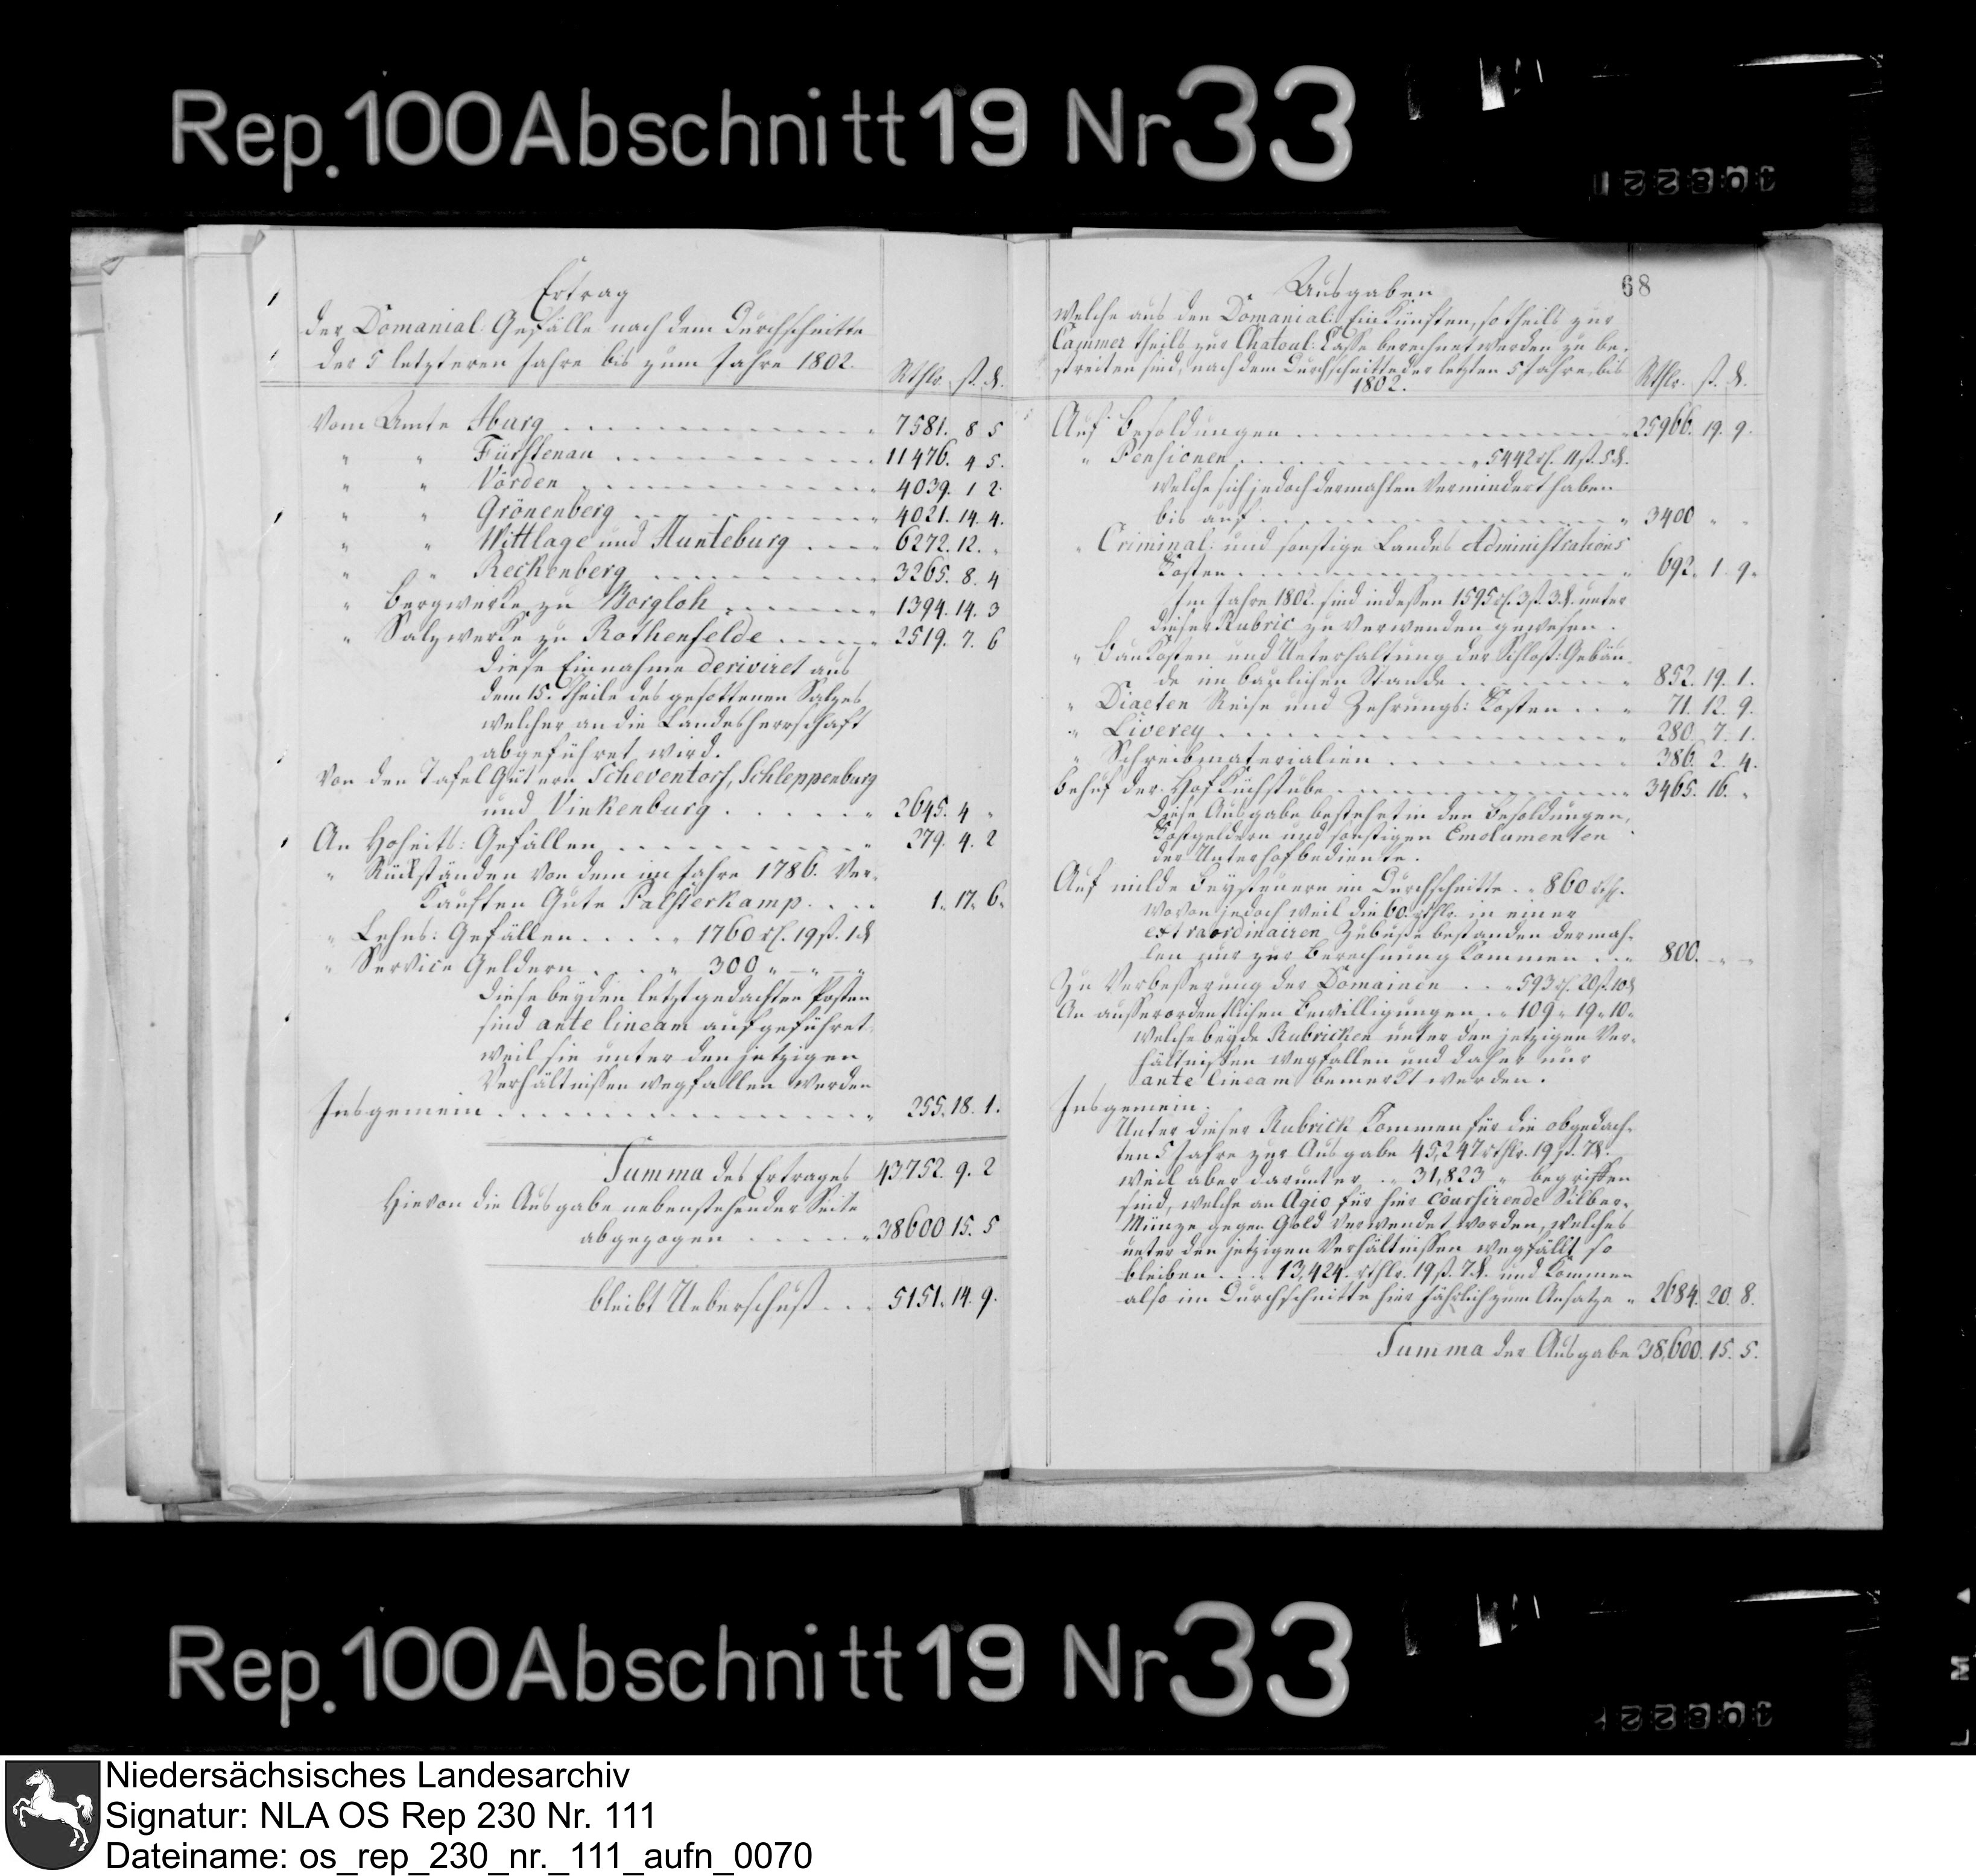 Rep. 100 Abschnitt 19 Nr 33
Ertrag
der Domanial: Gefälle nach dem Durchschnitte
der 5 letzteren Jahre bis zum Jahre 1802.
Rthlr. ß. d.
Vom Amte Iburg . . . . . . . . . . „ 7581. 8 5
„ „ Fürstenau . . . . . . . . . . 11476. 4 5.
„ „ Vörden . . . . . . . . . . „ 4039. 1 2.
„ „ Grönenberg . . . . . . . . . . „ 4021. 14. 4.
„ „ Wittlage und Hunteburg . . . . „ 6272. 12. „
„ „ Reckenberg . . . . . . . . . . „ 3265. 8. 4
„ Bergwerke zu Borgloh . . . . . . „ 1394. 14. 3
„ Salzwerke zu Rothenfelde . . . . . „ 2519. 7. 6
diese Einnahme deriviret aus
dem 15. Theile des gesottenen Salzes
welcher an die Landesherrschaft
abgeführet wird.
Von den Tafel Gütern Scheventorf, Schleppenburg
und Vinkenburg . . . . . „ 2645. 4 „
An Hoheits: Gefällen . . . . . . . . . . „ 279. 4. 2
„ Rückständen von dem im Jahre 1786. Ver-
kauften Gute Palsterkamp. . . . 1. 17. 6.
„ Lehns: Gefällen . . . . . „ 1760 rl. 19 ß. 1 d
„ Service Geldern . . . . „ 300 „ — „ — „
diese beyden letztgedachten Posten
sind ante lineam aufgeführet
weil sie unter den jetzigen
Verhältnissen wegfallen werden
Insgemein . . . . . . . . . . . . . . . „ 255. 18. 1.
Summa des Ertrages 43752. 9. 2
Hievon die Ausgabe nebenstehender Seite
abgezogen . . . . . . „ 38600 15. 5
bleibt Ueberschuß . . . 5151. 14. 9.
68
Ausgaben
welche aus den Domanial: Einkünften, so theils zur
Cammer theils zur Chatoul: Casse berechnet werden zu be-
streiten sind, nach dem Durchschnitte der letzten 5 Jahre, bis
1802.
Rthlr. ß. d.
Auf Besoldungen . . . . . . . . . . „ 25966. 19. 9.
„ Pensionen . . . . . . . . . . „ 5442 rl. 11 ß. 5 d.
welche sich jedoch dermahlen vermindert haben
bis auf . . . . . . . . . . „ 3400 „ „
„ Criminal: und sonstige Landes Administrations
Kosten . . . . . . . . . . „ 692. 1 9.
Im Jahre 1802. sind indessen 1595 rl. 3 ß. 3 d. unter
dieser Rubric zu verwenden gewesen.
„ Baukosten und Unterhaltung der Schloß: Gebäu-
de im baulichen Stande . . . . . . . „ 852. 19. 1.
„ Diaeten Reise und Zehrungs: Kosten . . „ 71. 12. 9.
„ Liverey . . . . . . . . . . „ 280. 7. 1.
„ Schreibmaterialien . . . . . . . . . . 386. 2. 4.
Behuf der Hof Küchstube . . . . . . . . . . „ 3465. 16. „
Diese Ausgabe bestehet in den Besoldungen,
Kostgeldern und sonstigen Emolumenten
der Unterhofbediente.
Auf milde Beysteuern im Durchschnitte . „ 860 rthl.
wovon jedoch weil die 60. rthlr. in einer
extraordinairen Zubuße bestanden dermah-
len nur zur Berechnung kommen . . „ 800. — —
Zu Verbesserung der Domainen . . „ 593 rl. 20 ß. 10 d
An ausserordentlichen Bewilligungen . „ 109 „ 19 „ 10 „
welche beyde Rubricken unter den jetzigen Ver-
hältnissen wegfallen und daher nur
ante lineam bemerkt werden.
Insgemein.
Unter dieser Rubrick kommen für die obgedach-
ten 5 Jahre zur Ausgabe 45,247 rthlr. 19 ß. 7 d.
weil aber darunter . „ 31,823 „ begriffen
sind, welche an Agio für hier coursirende Silber-
Münze gegen Gold verwendet worden, welches
unter den jetzigen Verhältnissen wegfällt so
bleiben . . . „ 13,424. rthlr. 19 ß. 7 d. und kommen
also im Durchschnitte hier jährlich zum Ansatze „ 2684. 20. 8.
Summa der Ausgabe 38,600. 15. 5.
Rep. 100 Abschnitt 19 Nr 33
Niedersächsisches Landesarchiv
Signatur: NLA OS Rep 230 Nr. 111
Dateiname: os_rep_230_nr._111_aufn_0070